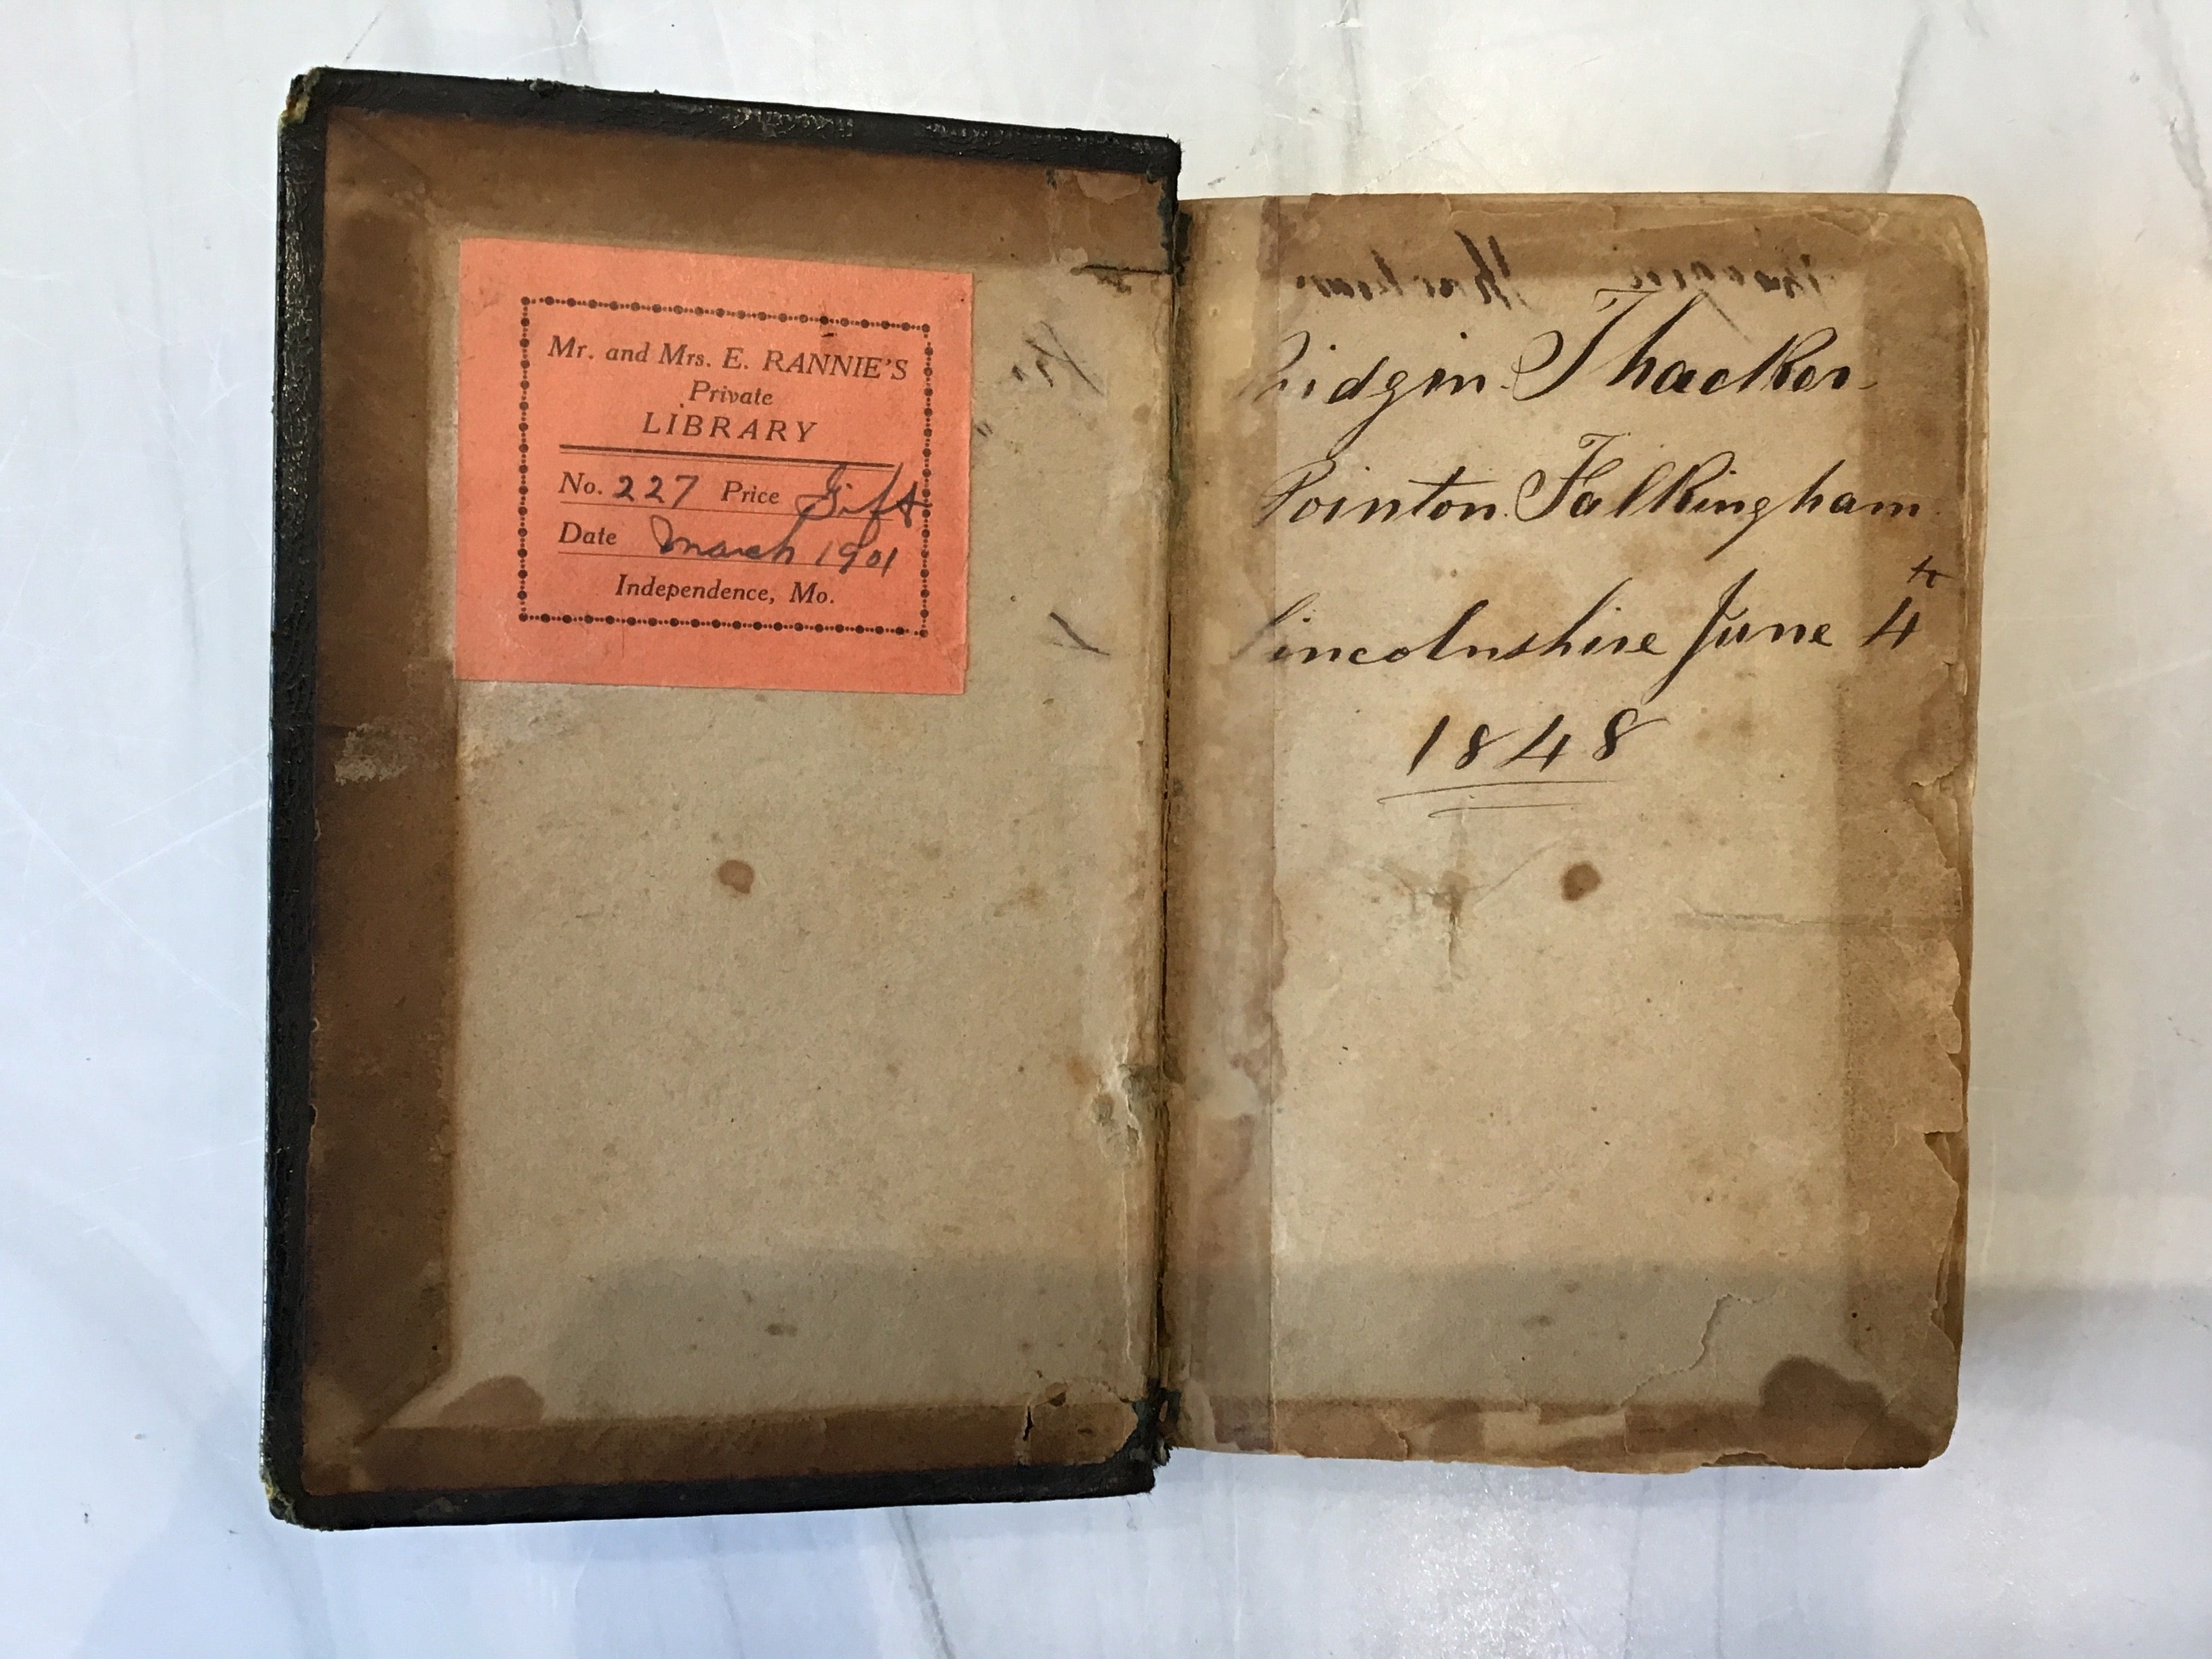 Mr. and Mrs. E. RANNIE'S
Private
LIBRARY
No. 227 Price Gift
Date March 1901
Independence, Mo.
Thacker
Pointon Falkingham
Lincolnshire June 4th
1848